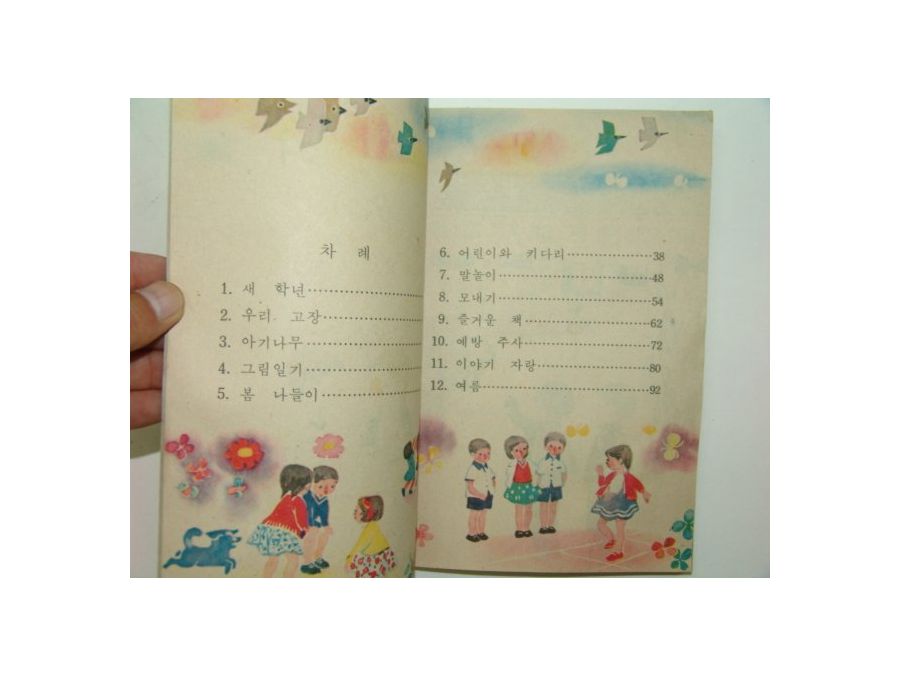 차 례
1. 새 학년
2. 우리 고장
3. 아기나무
4. 그림일기
5. 봄 나들이
6. 어린이와 키다리 38
7. 말놀이 48
8. 모내기 54
9. 즐거운 책 62
10. 예방 주사 72
11. 이야기 자랑 80
12. 여름 92